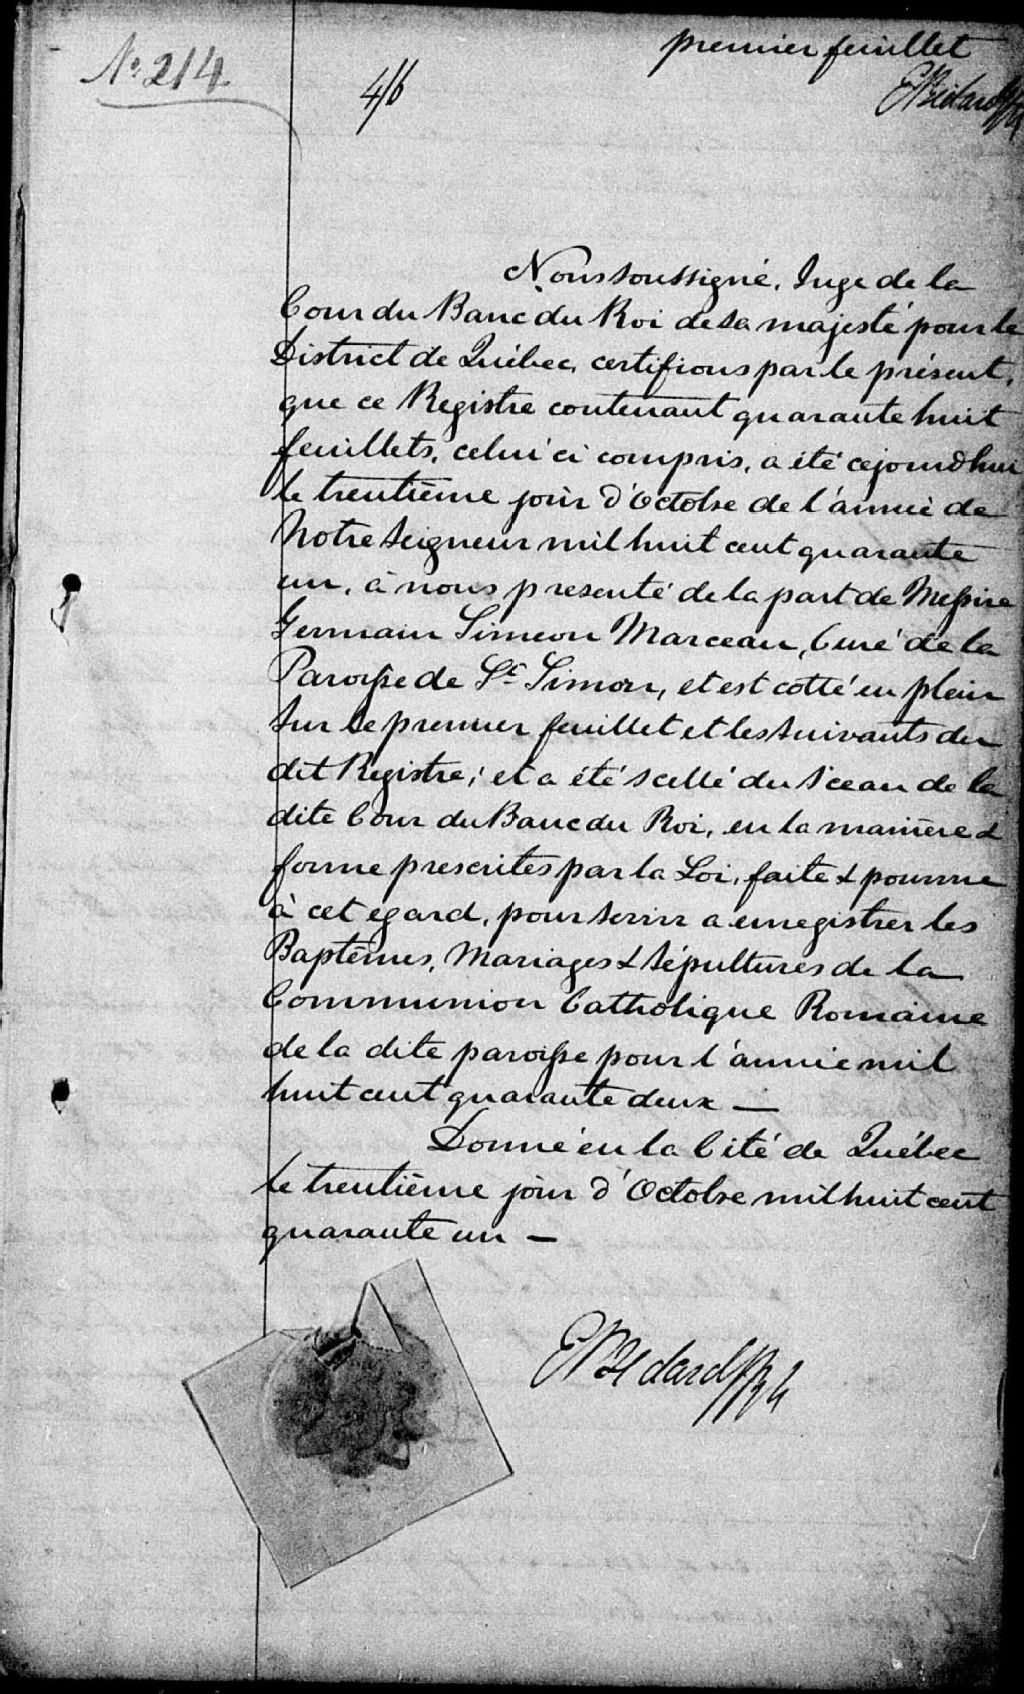 No. 214
4/6
premier feuillet
E Bédard
Nous soussigné, Juge de la
Cour du Banc du Roi de sa majesté pour le
District de Québec, certifions par le présent,
que ce Registre contenant quarante huit
feuillets, celui ci compris, a été cejourdhui
le trentième jour d'Octobre de l'année de
Notre Seigneur mil huit cent quarante
un, à nous presenté de la part de Messire
Germain Simeon Marceau, Curé de la
Paroisse de St Simon, et est cotté en plein
sur le premier feuillet et les suivants du
dit Registre; et a été scellé du Sceau de la
dite Cour du Banc du Roi, en la manière &
forme prescrites par la Loi, faite & pourvue
à cet egard, pour servir a enregistrer les
Baptêmes, Mariages & Sépultures de la
Communion Catholique Romaine
de la dite paroisse pour l'année mil
huit cent quarante deux —
Donné en la Cité de Québec
le trentième jour d'Octobre mil huit cent
quarante un —
E Bédard